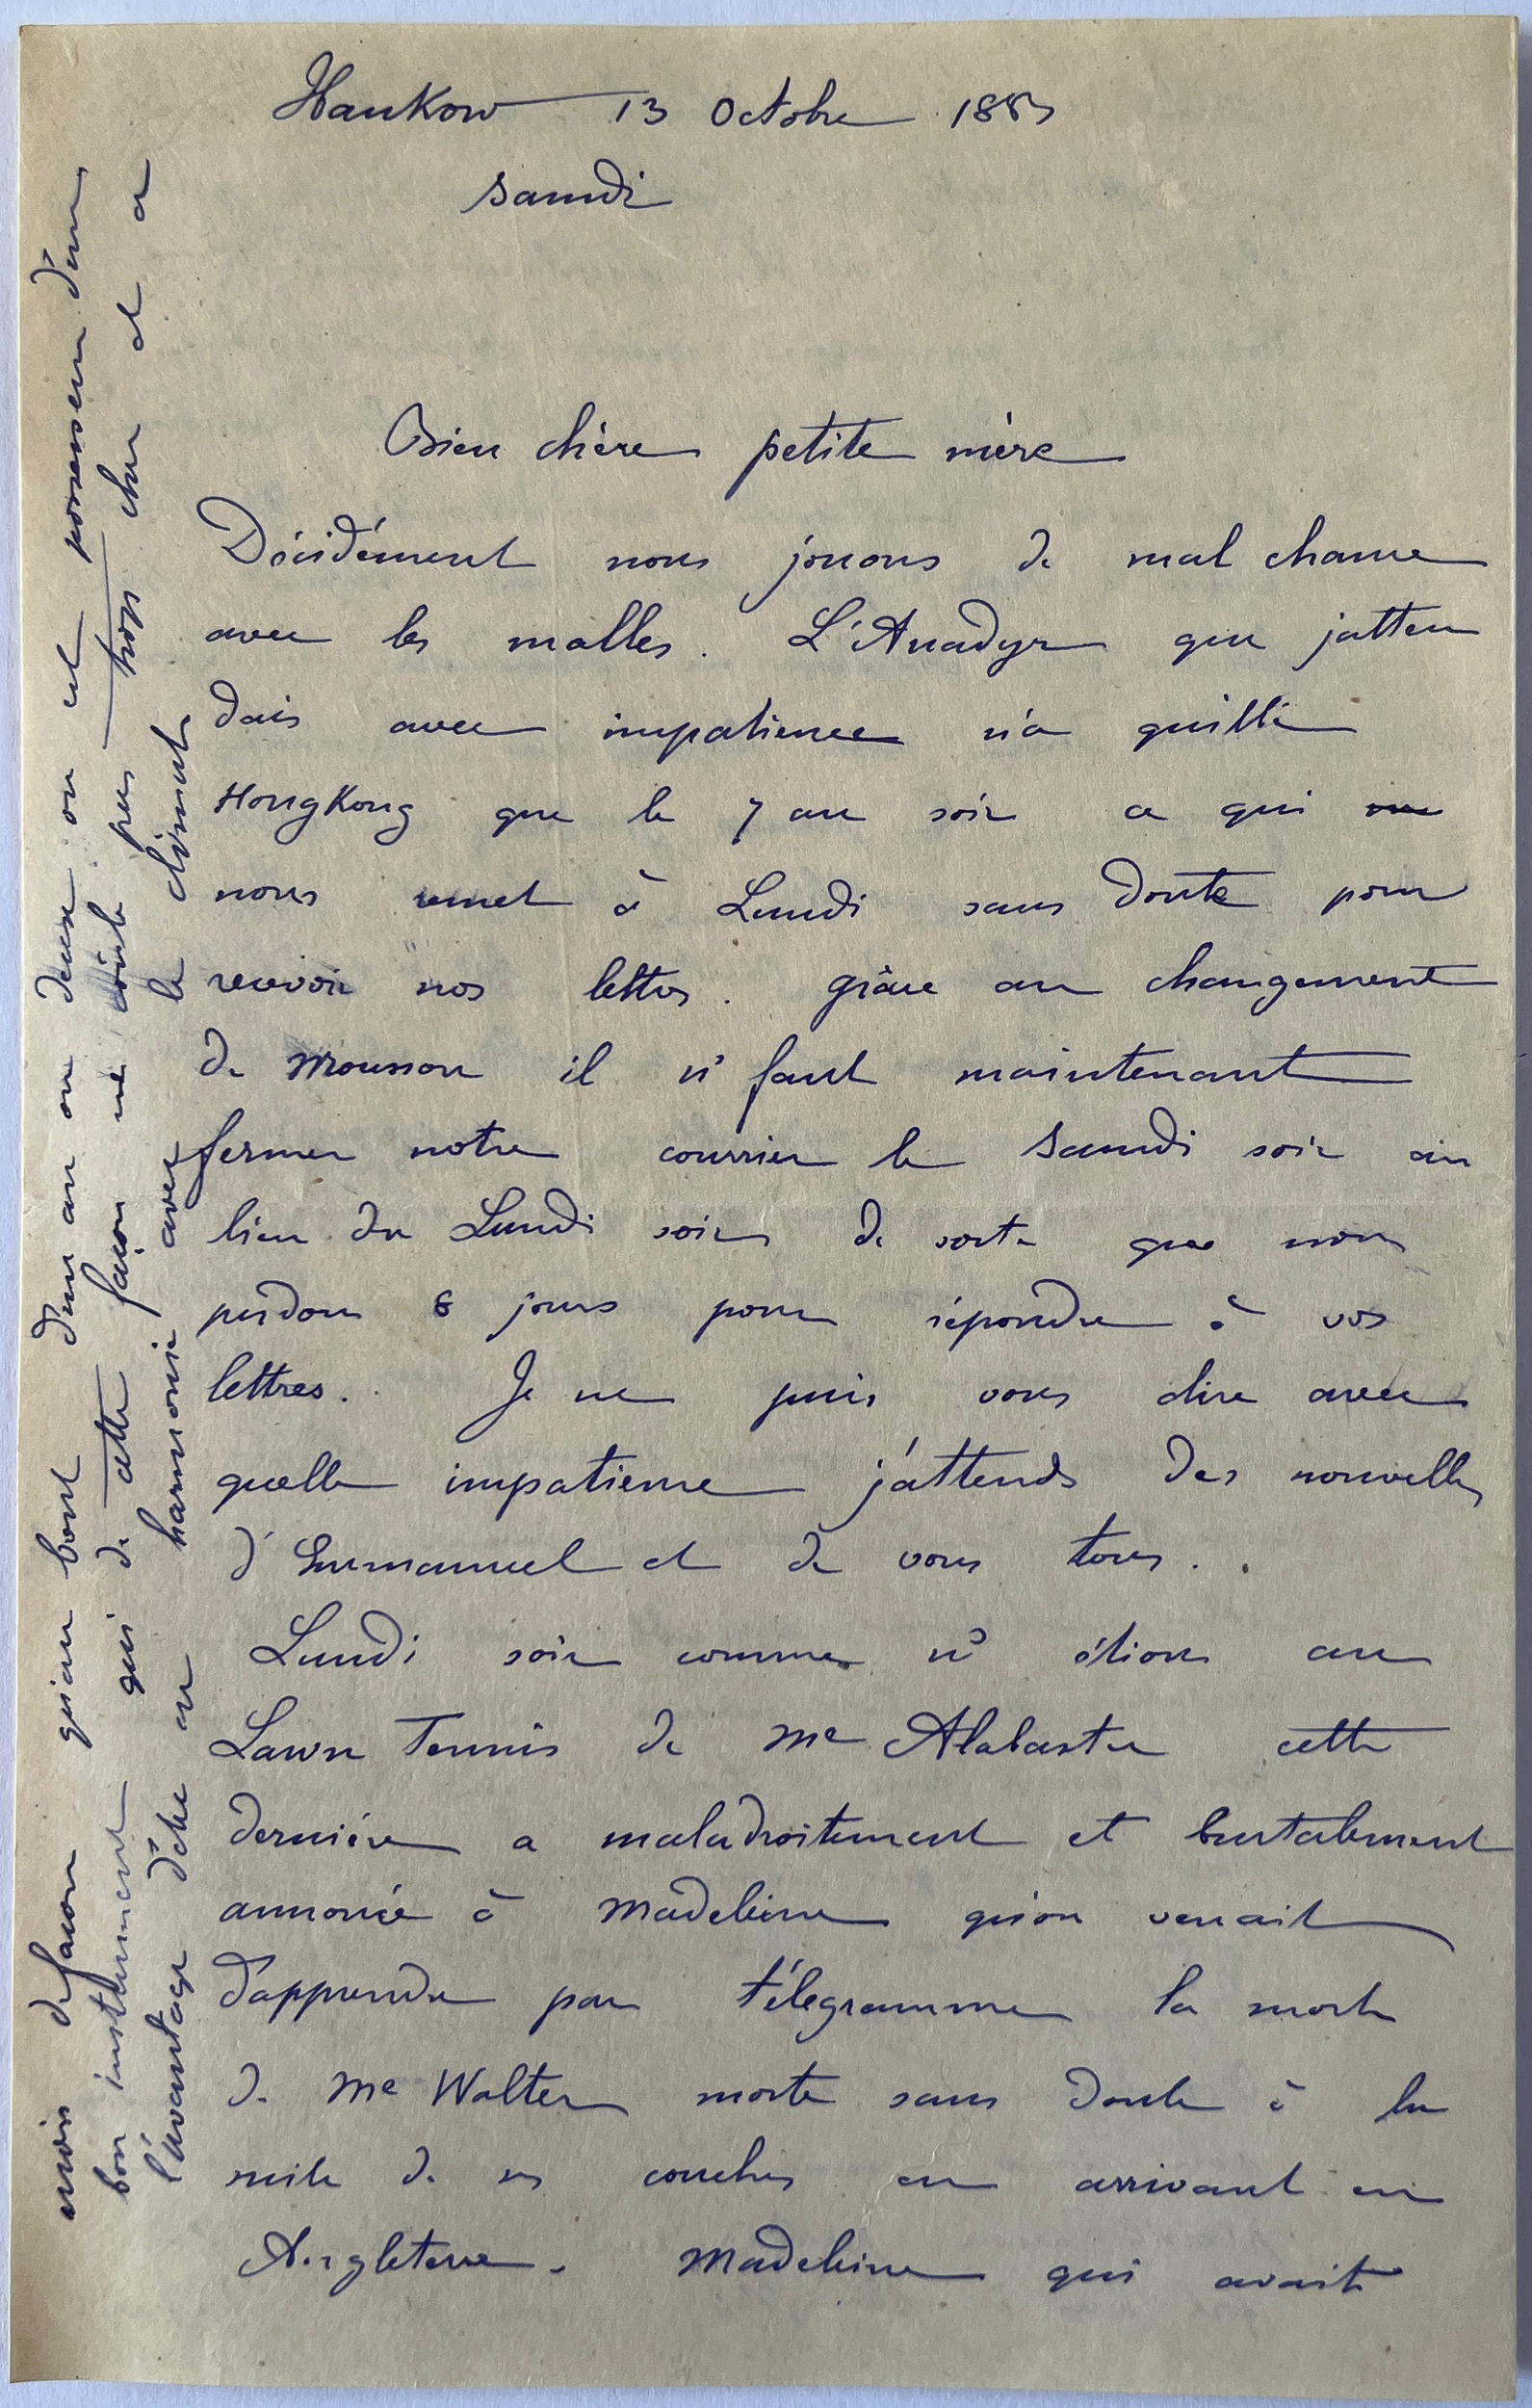 HanKow 13 Octobre 1883
Samedi
Bien chère petite mère
Décidément nous jouons de mal chance
avec les malles. L'Anadyr que j'atten
dais avec impatience n'a quitté
HongKong que le 7 au soir ce qui
nous remet à Lundi sans doute pour
recevoir nos lettres. grâce au changement
de mousson il ns faut maintenant
fermer notre courrier le Samedi soir au
lieu du Lundi soir de sorte que nous
perdons 8 jours pour répondre à vos
lettres. Je ne puis vous dire avec
quelle impatience j'attends des nouvelles
d'Emmanuel et de vous tous.
Lundi soir comme ns étions au
Lawn Tennis de Me Alabaster cette
dernière a maladroitement et brutalement
annoncé à Madeleine qu'on venait
d'apprendre par télégramme la mort
de Me Walter morte sans doute à la
suite de ses couches en arrivant en
Angleterre. Madeleine qui avait
mois de façon qu'au bout d'un an ou deux on est possesseur d'un
bon instrument qui de cette façon ne coûte pas trop cher et a
l'avantage d'être en harmonie avec le climat